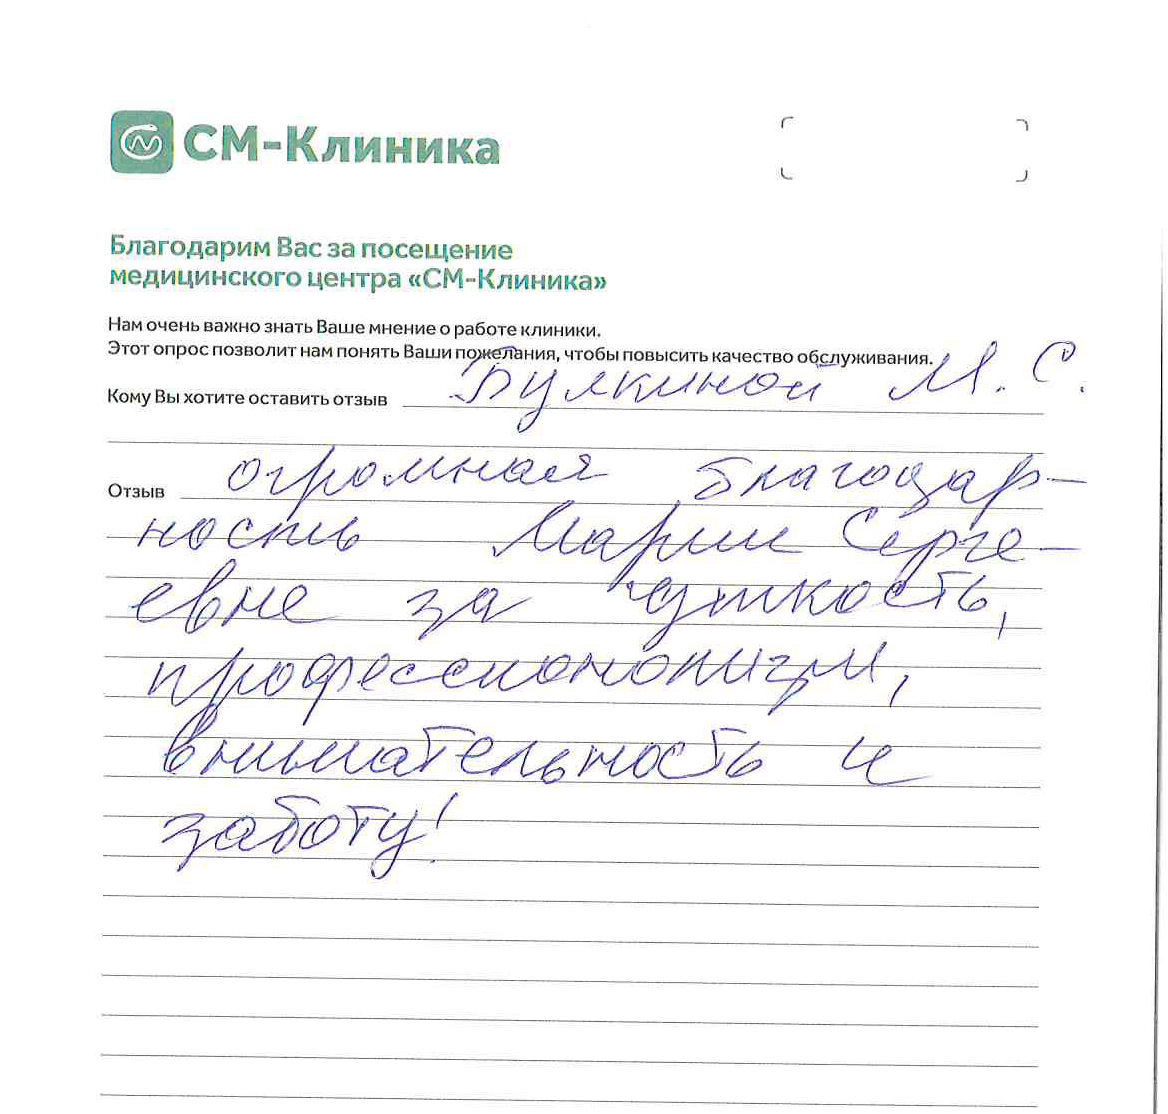 СМ-Клиника
Благодарим Вас за посещение
медицинского центра «СМ-Клиника»
Нам очень важно знать Ваше мнение о работе клиники.
Этот опрос позволит нам понять Ваши пожелания, чтобы повысить качество обслуживания.
Кому Вы хотите оставить отзыв Булкиной М. С.
Отзыв огромная благодар-
ность Марии Серге-
евне за чуткость,
профессионализм,
внимательность и
заботу!